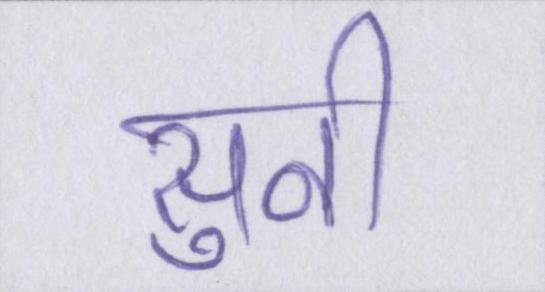 सुनी